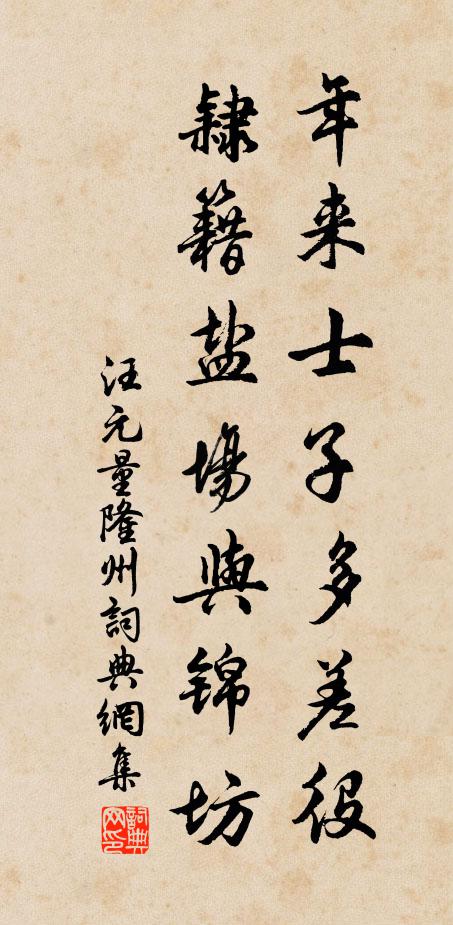 年来士子多差役
隸籍盐場與錦坊
汪元量隆州詞典網集
詞典网印